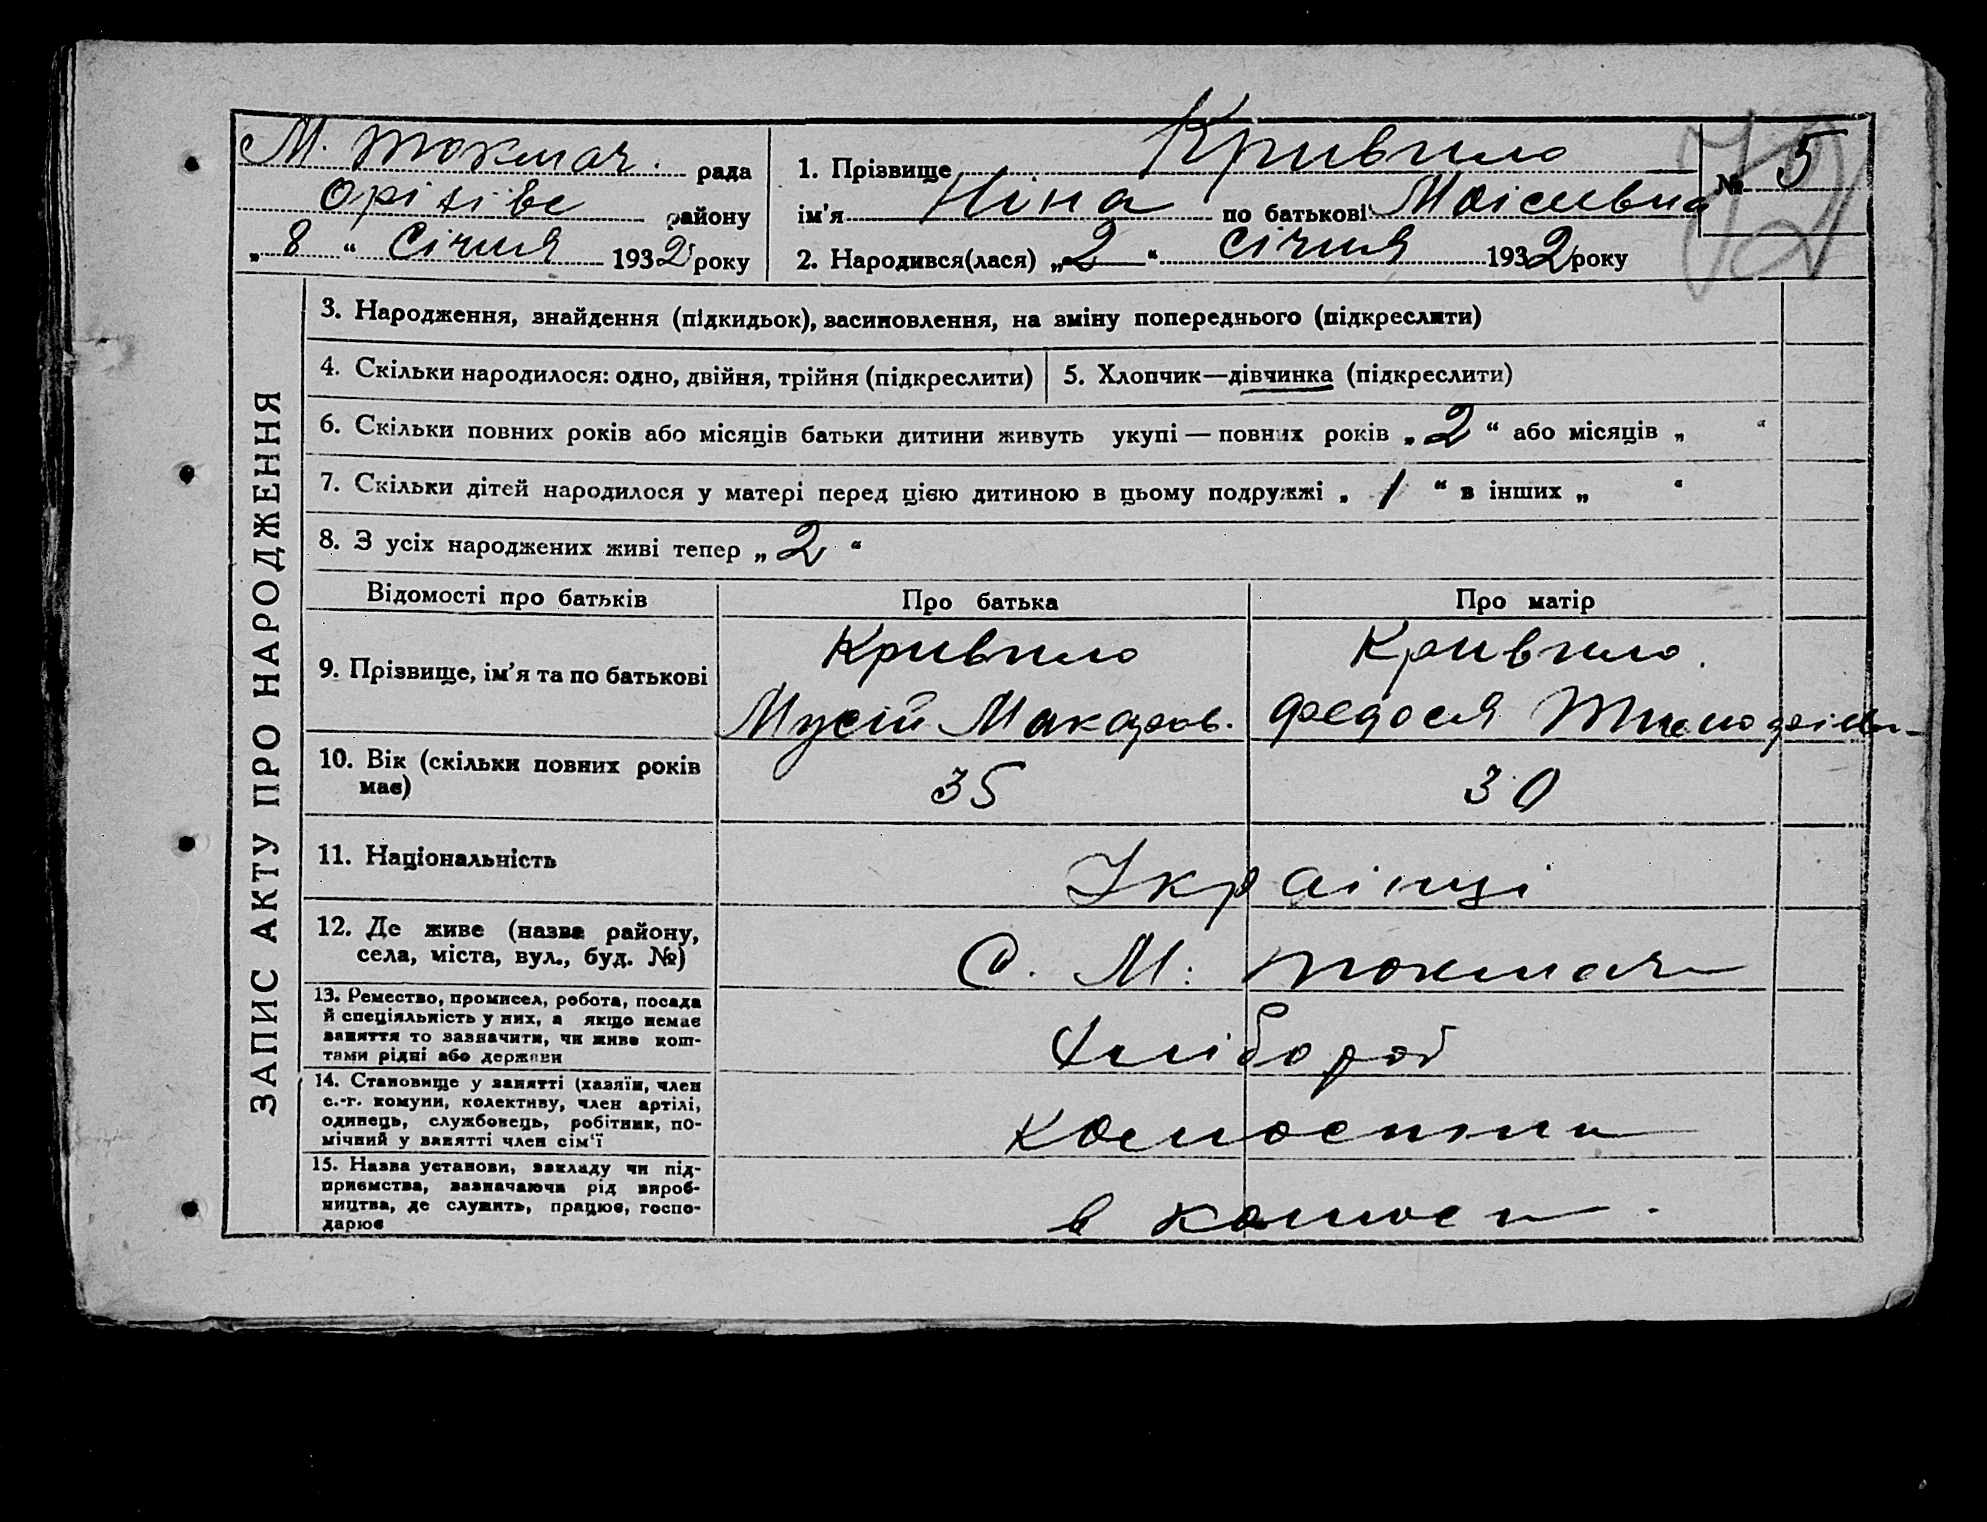 М. Токмач. рада
Оріхівс району
„ 8 “ Січня 1932 року
1. Прізвище Кривило
№ 5
72
ім'я Ніна по батькові Моісеївна
2. Народився(лася) „2“ Січня 1932 року
ЗАПИС АКТУ ПРО НАРОДЖЕННЯ
3. Народження, знайдення (підкидьок), засиновлення, на зміну попереднього (підкреслити)
4. Скільки народилося: одно, двійня, трійня (підкреслити)
5. Хлопчик—дівчинка (підкреслити)
6. Скільки повних років або місяців батьки дитини живуть укупі — повних років „ 2 “ або місяців „ “
7. Скільки дітей народилося у матері перед цією дитиною в цьому подружжі „ 1 “ в інших „ “
8. З усіх народжених живі тепер „ 2 “
Відомості про батьків
Про батька
Про матір
9. Прізвище, ім'я та по батькові
Кривило
Мусій Макаров.
Кривило.
Федося
10. Вік (скільки повних років
має)
35
30
11. Національність
Українці
12. Де живе (назва району,
села, міста, вул., буд. №)
С. М. Токмач
13. Ремество, промисел, робота, посада
й спеціяльність у них, а якщо немає
заняття то зазначити, чи живе кош-
тами рідні або держави
Хлібороб
14. Становище у занятті (хазяїн, член
с.-г. комуни, колективу, член артілі,
одинець, службовець, робітник, по-
мічний у занятті член сім'ї
15. Назва установи, закладу чи під-
приємства, зазначаючи рід вироб-
ництва, де служить, працює, госпо-
дарює
в